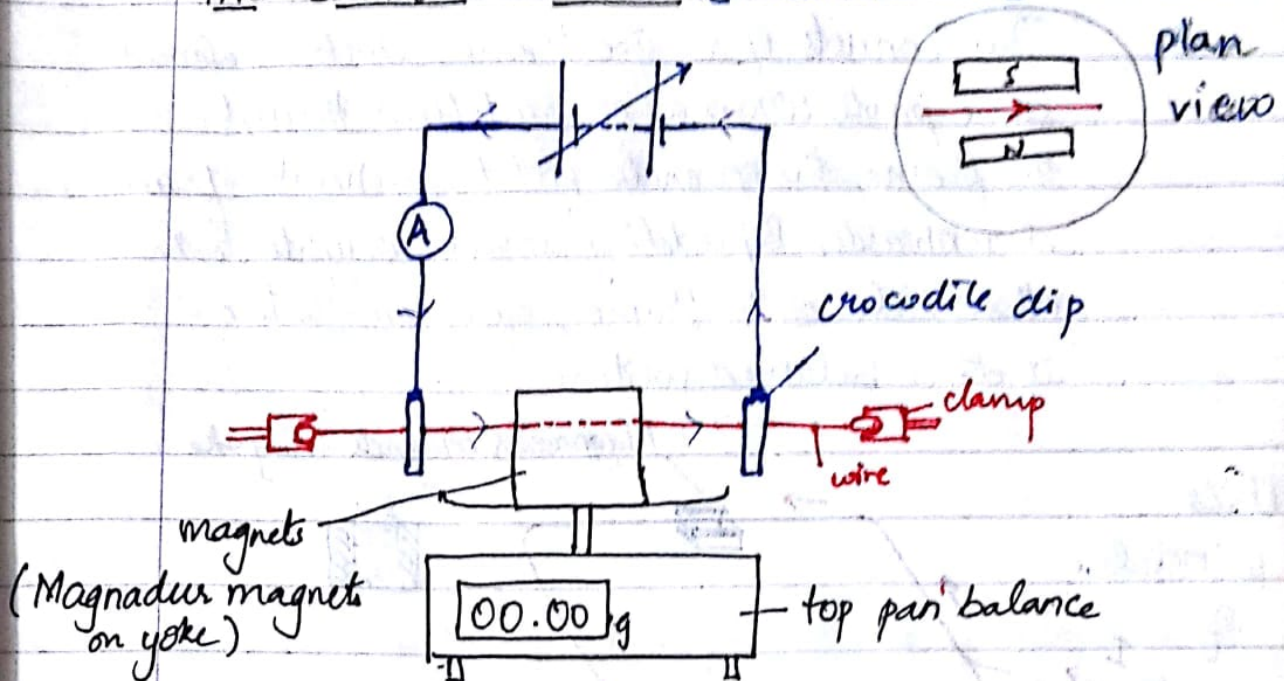 plan
view
S
N
A
crocodile clip
clamp
wire
magnets
(Magnadur magnets
on yoke)
00.00 g
top pan balance